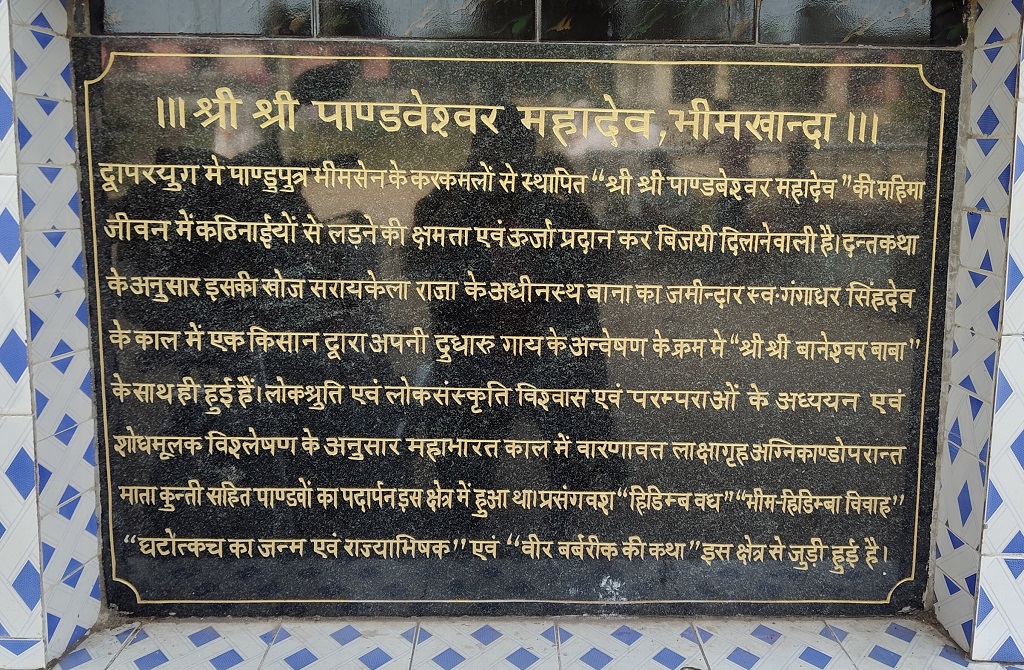 ॥। श्री श्री पाण्डवेश्वर महादेव, भीमखान्दा ॥।
द्वापरयुग मे पाण्डुपुत्र भीमसेन के करकमलों से स्थापित “श्री श्री पाण्डबेश्वर महादेव ”की महिमा
जीवन में कठिनाईयों से लड़ने की क्षमता एवं ऊर्जा प्रदान कर बिजयी दिलानेवाली है। दन्तकथा
के अनुसार इसकी खोज सरायकेला राजा के अधीनस्थ बाना का जमीन्दार स्व॰ गंगाधर सिंहदेव
के काल में एक किसान द्वारा अपनी दुधारु गाय के अन्वेषण के क्रम मे “श्री श्री बानेश्वर बाबा”
के साथ ही हुई हैं। लोकश्रुति एवं लोकसंस्कृति विश्वास एवं परम्पराओं के अध्ययन एवं
शोधमूलक विश्लेषण के अनुसार महाभारत काल में वारणावत लाक्षागृह अग्निकाण्डोपरान्त
माता कुन्ती सहित पाण्डवों का पदार्पन इस क्षेत्र में हुआ था। प्रसंगवश “हिडिम्ब वध” “भीम-हिडिम्बा विवाह”
“घटोत्कच का जन्म एवं राज्याभिषक” एवं “वीर बर्बरीक की कथा” इस क्षेत्र से जुड़ी हुई है।